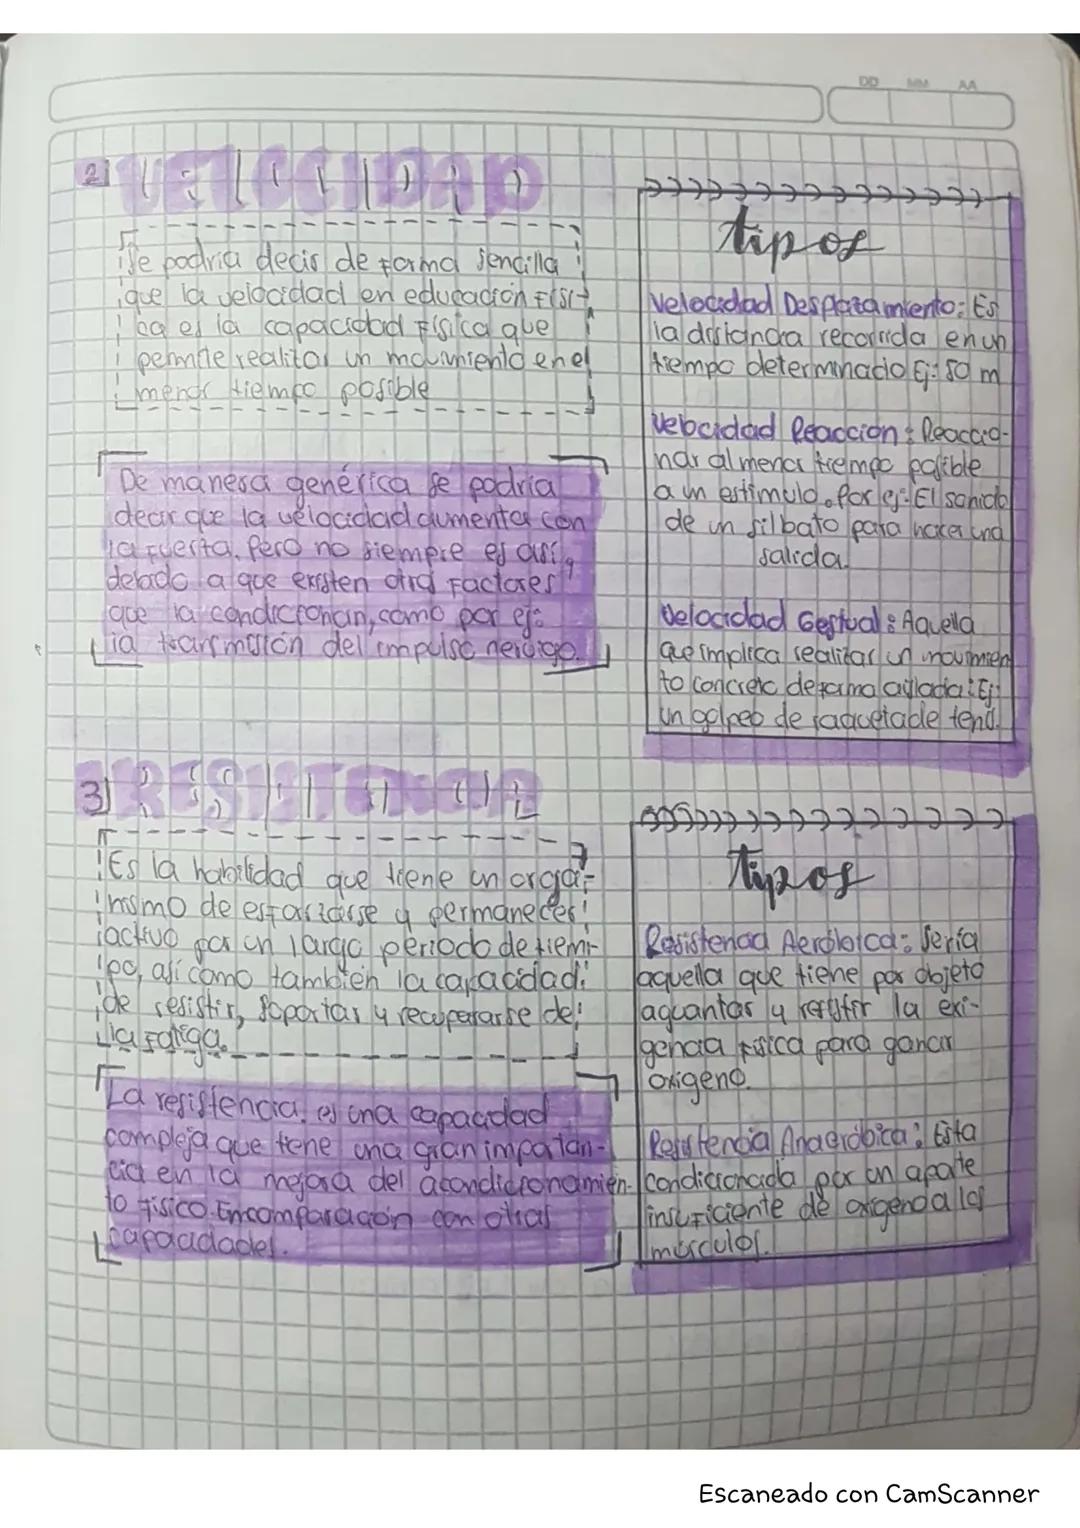 DD MM AA
2) VELOCIDAD
Se podría decir de forma sencilla
que la velocidad en educación físi-
ca es la capacidad física que
permite realizar un movimiento en el
menor tiempo posible
De manera genérica se podría
decir que la velocidad aumenta con
la fuerza. Pero no siempre es así,
debido a que existen otros Factores
que la condicionan, como por ej:
la transmisión del impulso nervioso.
tipos
Velocidad Desplazamiento: Es
la distancia recorrida en un
tiempo determinado Ej: 50 m
Velocidad Reacción: Reaccio-
nar al menor tiempo posible
a un estimulo. Por ej: El sonido
de un silbato para hacer una
salida.
Velocidad Gestual: Aquella
que implica realizar un movimien
to concreto de forma aislada: Ej:
un golpeo de raqueta de tenis.
3) RESISTENCIA
Es la habilidad que tiene un orga-
nismo de esforzarse y permanecer
activo por un largo periodo de tiem-
po, así como también la capacidad
de resistir, soportar y recuperarse de
la fatiga.
La resistencia, es una capacidad
compleja que tiene una gran importan-
cia en la mejora del acondicionamien-
to físico. En comparación con otras
capacidades.
tipos
Resistencia Aeróbica: Sería
aquella que tiene por objeto
aguantar y resistir la exi-
gencia física para ganar
oxígeno.
Resistencia Anaeróbica: Esta
condicionada por un aporte
insuficiente de oxigeno a los
músculos.
Escaneado con CamScanner